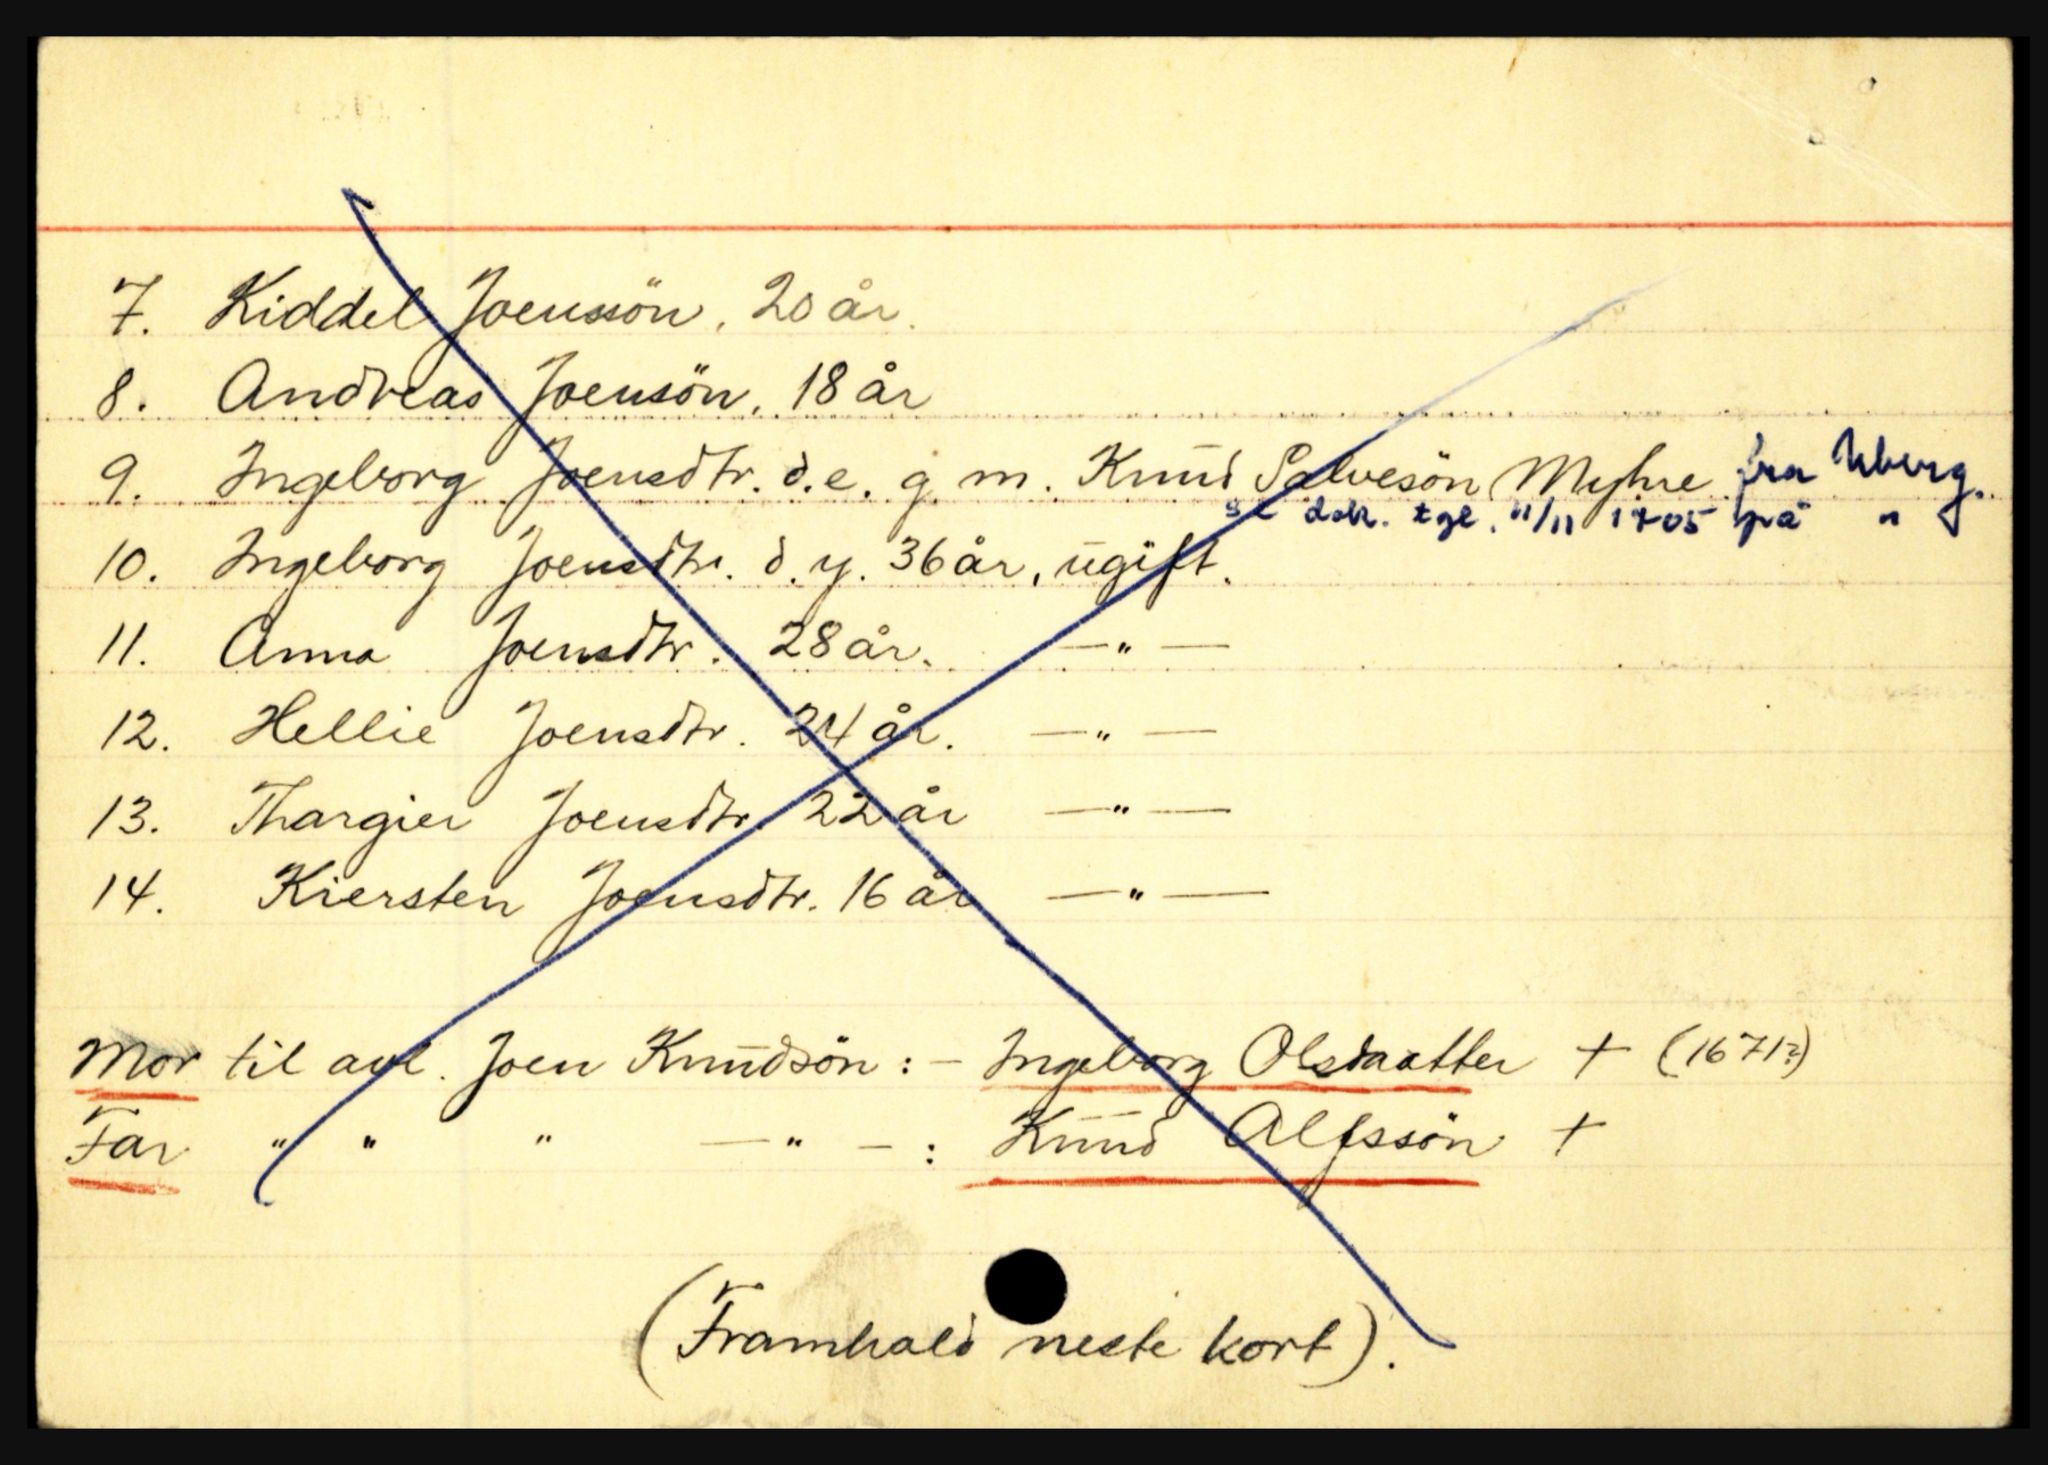 7. Kiddel Joenssön, 20 år.
8. Andreas Joensön, 18 år
9. Ingeborg Joensdtr. d.e. g. m. Knud Salvesön Myhre fra Uberg.
se dok. tgl. 11/11 1705 på "
10. Ingeborg Joensdtr. d. y. 36 år, ugift.
11. Anna Joensdtr. 28 år. —"—
12. Hellie Joensdtr. 24 år. —"—
13. Thargier Joensdtr. 22 år —"—
14. Kiersten Joensdtr. 16 år —"—
Mor til avl. Joen Knudsön: - Ingeborg Olsdaatter + (1671?)
Far " " " —"— : Knud Alfssön +
(Framhald neste kort).